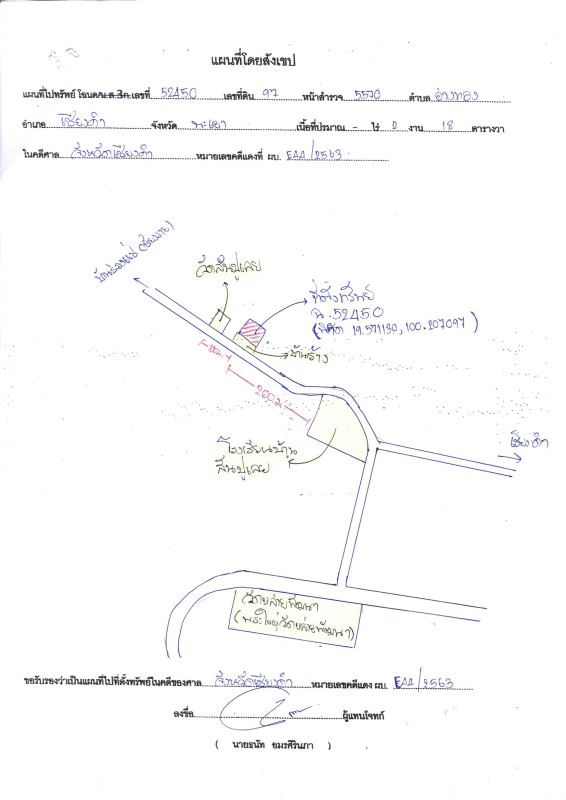 แผนที่โดยสังเขป
แผนที่ไปทรัพย์ โฉนด/น.ส.3ก.เลขที่ 52450 เลขที่ดิน 97 หน้าสำรวจ 5570 ตำบล อ่างทอง
อำเภอ เชียงคำ จังหวัด พะเยา เนื้อที่ประมาณ - ไร่ 2 งาน 18 ตารางวา
ในคดีศาล จังหวัดเชียงคำ หมายเลขคดีแดงที่ ผบ. E44/2563
วัดสันปูเลย
ที่ตั้งทรัพย์
น.52450
(พิกัด 19.571190, 100.207097)
บ้านร้าง
260 ม
โรงเรียนบ้าน
สันปูเลย
เชียงคำ
วัดหล่ายพัฒนา
(พระใหญ่วัดหล่ายพัฒนา)
ขอรับรองว่าเป็นแผนที่ไปที่ตั้งทรัพย์ในคดีของศาล จังหวัดเชียงคำ หมายเลขคดีแดง ผบ. E44/2563
ลงชื่อ ผู้แทนโจทก์
( นายธนัท อมรศิรินภา )